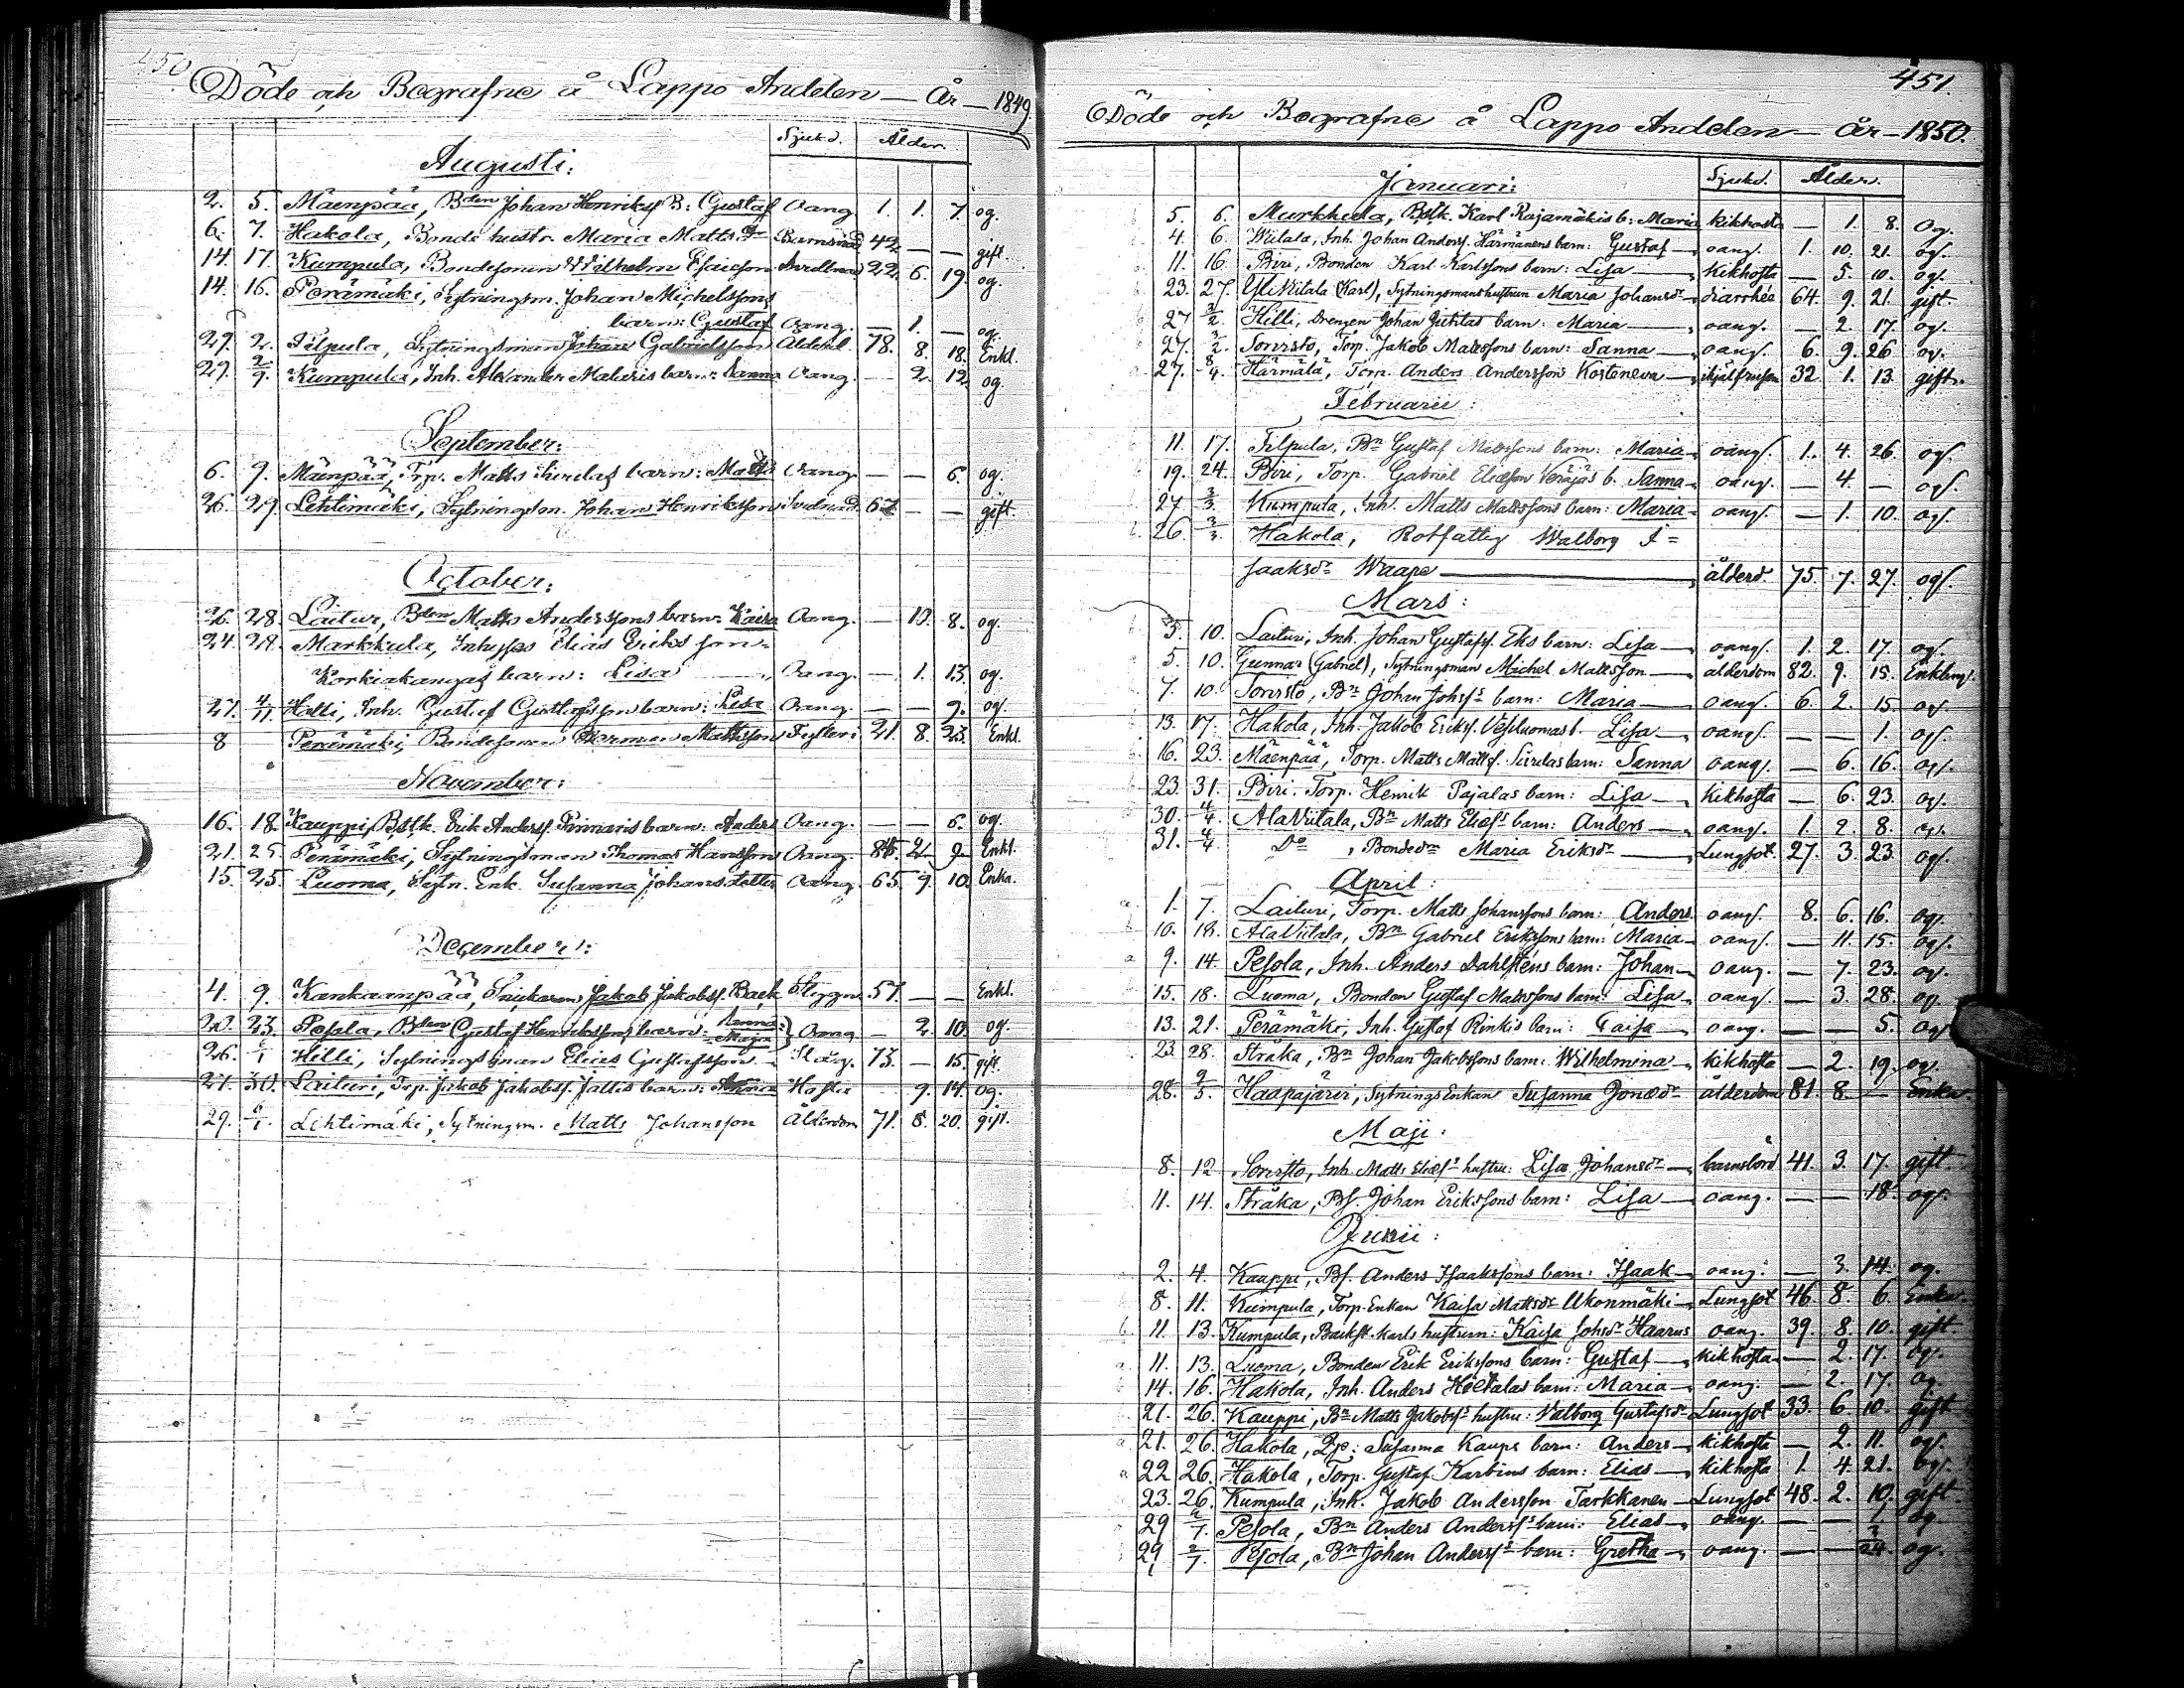 450.
Döde och Begrafne å Lappo Andelen — År — 1849
Sjukd. Ålder.
Augusti:
2. 5. Mäenpää, Bden Johan Henriks B: Gustaf Oang. 1. 1. 7. og.
6. 7. Hakola, Bonde hustr. Maria Mattsdr Barnsnöd 42 — — gift.
14. 17. Kumpula, Bondesonen Wilhelm Esaicson 22. 6. 19. og.
14. 16. Perämäki, Sytningsm. Johan Michelssons
barn: Gustaf Oang. — 1. — og.
27. 2. Filpula, Sytningsman Johan Gabrielsson Ålderd. 78. 8. 18. Enkl.
29. 2/9. Kumpula, Inh. Alexander Maluris barn: Sanna Oang. — 2. 12. og.
September:
6. 9. Mäenpää, Trp. Matts barn: Matts Oang. — — 6. og.
26. 29. Lehtimäki, Sytningson. Johan Henriksson 67 — — gift.
October:
26. 28. Laituri, Bden Matts Anderssons barn: Kaisa Oang. — 10. 8. og.
24. 28. Markkula, Inhyses Elias Eriksson
Korkiakangas barn: Lisa — Oang. — 1. 13. og.
27. 4/11 Halli, Inh. Gustaf Gustafsson barn: Lisa Oang. — — 9. og.
8 Perämäki, Bondesonen Herman Mattsson 21. 8. 23. Enkl.
November:
16. 18. Kauppi, Bstk. Erik Anderss. Finnaris barn: Anders Oang. — — 6. og.
21. 25. Perämäki, Sytningsman Thomas Hansson Oang. 86. 2. 9. Enkl.
15. 25. Luoma, Sytn. Enk. Susanna Johansdotter Oang. 65. 9. 10. Enka.
December:
4. 9. Kankaanpää, Jakob Jakobss. Back Slag 57. — — Enkl.
20. 23. Pesola, Bden Gustaf Henrikssons barn: Sanna Maja Oang — 2. 10. og.
26. 6/1 Hilli, Sytningsman Elias Gustafsson — Slag. 73. — 15. gift.
27. 30. Laituri, Trp. Jakob Jakobss. Jallis barn: Anna Hosta 9. 14. og.
29. 6/1. Lehtimäki, Sytningsm. Matts Johansson Ålderdom 71. 8. 20. gift.
451.
Döde och Begrafne å Lappo Andelen — År — 1850.
Sjukd. Ålder.
Januari:
5. 6. Markkula, Bstk. Karl Rajamäkis b: Maria kikhosta — 1. 8. Og.
4. 6. Wiitala, Inh. Johan Anderss. Härmänens barn: Gustaf — oang. 1. 10. 21. og.
11. 16. Biri, Bonden Karl Karlssons barn: Lisa — kikhosta — 5. 10. og.
23. 27. YliWiitala (Karl), Sytningsmanshustrun Maria Johansdr — diarrhée 64. 9. 21. gift.
27 3/2. Hilli, Drengen Johan Jutilas barn: Maria — oang. — 2. 17. og.
27. 3/2. Sorvisto, Torp. Jakob Mattssons barn: Sanna — oang. 6. 9. 26 og.
27. 8/4. Härmälä, Torp. Anders Andersson Kosteneva — ihjälfrusen 32. 1. 13. gift.
Februarii:
11. 17. Filpula, Bn Gustaf Mattssons barn: Maria — oang. 1. 4. 26. og.
19. 24. Biri, Torp. Gabriel Eliæson Venäjäs b. Sanna — oang. — 4. — og.
27 3/3. Kumpula, Inh. Matts Mattssons barn: Maria — oang. — 1. 10. og.
26. 3/3. Hakola, Rotfattig Walborg I=
saaksdr Waape — ålderd. 75. 7. 27. og.
Mars:
5. 10. Laituri, Inh. Johan Gustafss. Eks barn: Lisa — oang. 1. 2. 17. og.
5. 10. Gunnar (Gabriel), Sytningsman Michel Mattsson — ålderdom 82. 9. 15. Enkling.
7. 10. Sorvisto, Bn Johan Johss barn: Maria — oang. 6. 2. 15. og.
13. 17. Hakola, Inh. Jakob Erikss. Vesiluomas b. Lisa — oang. — — 1. og.
16. 23. Mäenpää, Torp. Matts Mattss. Siirilas barn: Sanna oang. — 6. 16. og.
23. 31. Biri. Torp. Henrik Pajalas barn: Lisa — Kikhosta — 6. 23. og.
30. 4/4. AlaViitala, Bn Matts Eliæss barn: Anders — oang. 1. 2. 8. og.
31. 4/4. Do, Bondedr Maria Eriksdr — Lungsot. 27. 3. 23. og.
April:
1. 7. Laituri, Torp. Matts Johanssons barn: Anders oang. 8. 6. 16. og.
10. 18. AlaViitala, Bn Gabriel Erikssons barn: Maria — oang. — 11. 15. og.
9. 14. Pesola, Inh. Anders Dahlsténs barn: Johan — oang. — 7. 23. og.
15. 18. Luoma, Bonden Gustaf Mattssons barn: Lisa — oang. — 3. 28. og.
13. 21. Perämäki, Inh. Gustaf Rinkis barn: Caisa — oang. — — 5. og.
23. 28. Stråka, Bn Johan Jakobssons barn: Wilhelmina — kikhosta — 2. 19. og.
28. 9/5. Haapajärvi, SytningsEnkan Susanna Jonædr — ålderdom 81. 8. — Enka.
Maji:
8. 12. Sorvisto, Inh. Matts Eliæss hustru: Lisa Johansdr — barnsbörd 41. 3. 17. gift.
11. 14. Stråka, Bs. Johan Erikssons barn: Lisa — oang. — — 18. og.
Junii:
2. 4. Kauppi, Bs. Anders Isaakssons barn: Isaak — oang. — 3. 14. og.
8. 11. Kumpula, Torp. Enkan Kaisa Mattsdr Ukonmäki — Lungsot 46. 8. 6. Enka.
11. 13. Kumpula, Backst. Karls hustrun: Kaisa Johsdr Haarus oang. 39. 8. 10. gift.
11. 13. Luoma, Bonden Erik Erikssons barn: Gustaf — kikhosta — 2. 17. og.
14. 16. Hakola, Inh. Anders Hietalas barn: Maria — oang. — 2. 17. og.
21. 26. Kauppi, Bn Matts Jakobss hustru: Valborg Gustafsdr Lungsot 33. 6. 10. gift
21. 26. Hakola, Qp: Susanna Kaups barn: Anders — kikhosta — 2. 11. og.
22. 26. Hakola, Torp. Gustaf Karbins barn: Elias — kikhosta 1. 4. 21. og.
23. 26. Kumpula, Inh. Jakob Andersson Tarkkanen — Lungsot 48. 2. 10. gift
29 2/7. Pesola, Bn Anders Anderss barn: Elias — oang. — — 1. og.
29 2/7. Pesola, Bn Johan Anderss barn: Gretha — oang. — — 3/24. og.